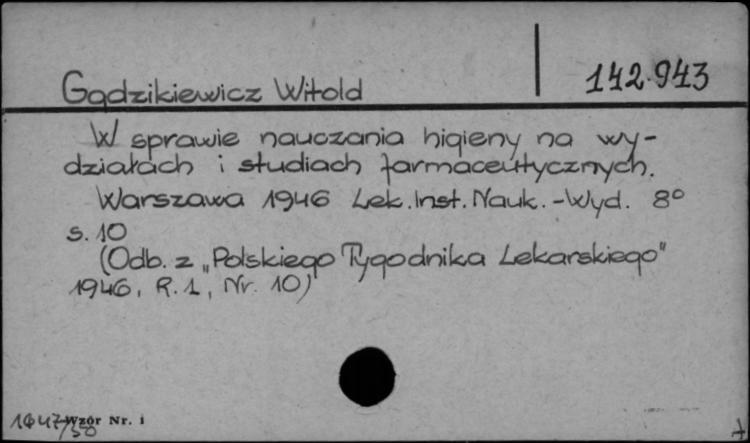 142.943
Gądzikiewicz Witold
W sprawie nauczania higieny na wy-
działach i studiach farmaceutycznych.
Warszawa 1946 Lek. Inst. Nauk. - Wyd. 8°
s. 10
(Odb. z „Polskiego Tygodnika Lekarskiego"
1946, R. 1, Nr. 10)
Wzór Nr. 1